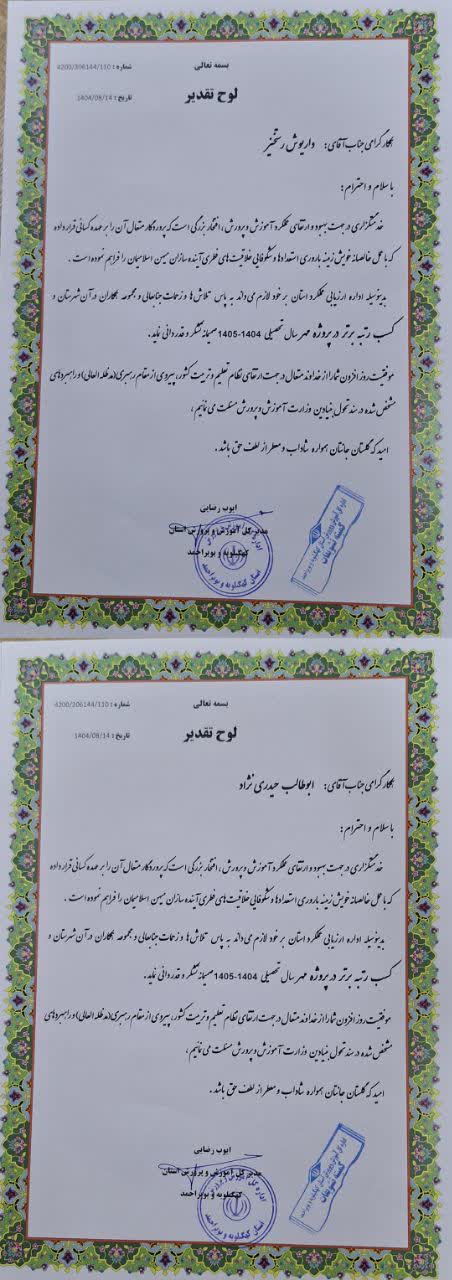 بسمه تعالی
شماره : 4200/306144/110
لوح تقدیر
تاریخ : 1404/08/14
همکار گرامی جناب آقای: داریوش رستخیز
با سلام و احترام؛
خدمتگزاری در جهت بهبود و ارتقای عملکرد آموزش و پرورش، افتخار بزرگی است که پروردگار متعال آن را بر عهده کسانی قرار داده
که با عمل خالصانه خویش زمینه باروری استعدادها و شکوفایی خلاقیت های فطری آینده سازان میهن اسلامیمان را فراهم نموده است .
بدینوسیله اداره ارزیابی عملکرد استان بر خود لازم می داند به پاس تلاش ها و زحمات جنابعالی و مجموعه همکاران در آن شهرستان و
کسب رتبه برتر در پروژه مهر سال تحصیلی 1404-1405 صمیمانه تشکر و قدردانی نماید.
موفقیت روز افزون شما را از خداوند متعال در جهت ارتقای نظام تعلیم و تربیت کشور، پیروی از مقام رهبری(مدظله العالی) و راهبردهای
مشخص شده در سند تحول بنیادین وزارت آموزش و پرورش مسئلت می نمایم،
امید که گلستان جانتان همواره شاداب و معطر از لطف حق باشد .
ایوب رضایی
مدیر کل آموزش و پرورش استان
کهگیلویه و بویراحمد
بسمه تعالی
شماره : 4200/206144/110
لوح تقدیر
تاریخ : 1404/08/14
همکار گرامی جناب آقای: ابوطالب حیدری نژاد
با سلام و احترام؛
خدمتگزاری در جهت بهبود و ارتقای عملکرد آموزش و پرورش، افتخار بزرگی است که پروردگار متعال آن را بر عهده کسانی قرار داده
که با عمل خالصانه خویش زمینه باروری استعدادها و شکوفایی خلاقیت های فطری آینده سازان میهن اسلامیمان را فراهم نموده است .
بدینوسیله اداره ارزیابی عملکرد استان بر خود لازم می داند به پاس تلاش ها و زحمات جنابعالی و مجموعه همکاران در آن شهرستان و
کسب رتبه برتر در پروژه مهر سال تحصیلی 1404-1405 صمیمانه تشکر و قدردانی نماید.
موفقیت روز افزون شما را از خداوند متعال در جهت ارتقای نظام تعلیم و تربیت کشور، پیروی از مقام رهبری(مدظله العالی) و راهبردهای
مشخص شده در سند تحول بنیادین وزارت آموزش و پرورش مسئلت می نمایم،
امید که گلستان جانتان همواره شاداب و معطر از لطف حق باشد .
ایوب رضایی
مدیر کل آموزش و پرورش استان
کهگیلویه و بویراحمد